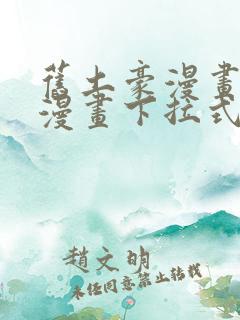 舊土豪漫畫
漫畫下拉式
趙文明
未任同意禁止转载